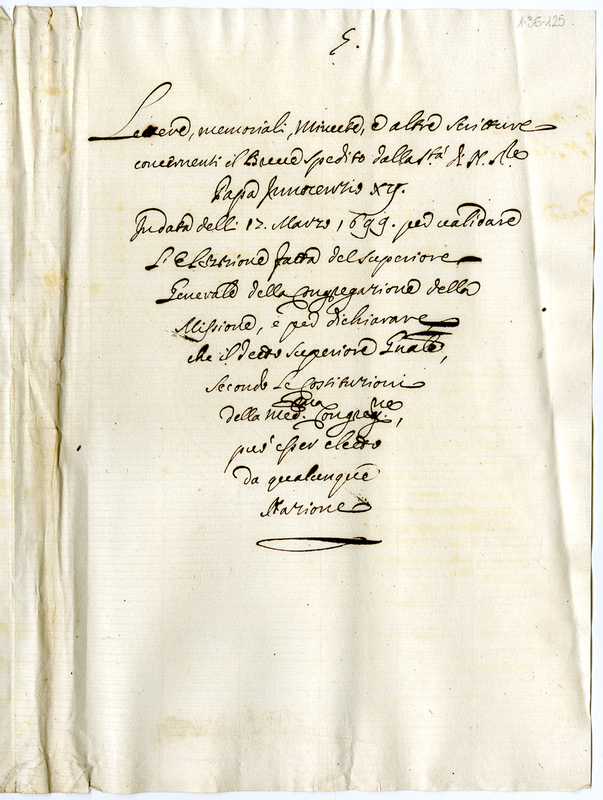 1-36-125
5.
Lettere, memoriali, Minute, e altre scritture
concernenti il Breve spedito dalla Stà di N. Sre
Papa Innocenzio xij.
In data delli 12. Marzo 1699. per validare
L'Elezzione fatta del superiore
Generale della Congregazione della
Missione, e per dichiarare
che il detto superiore Gnale,
secondo Le Costituzioni
della Med.ma Congreg.ne,
può esser eletto
da qualunque
Nazione